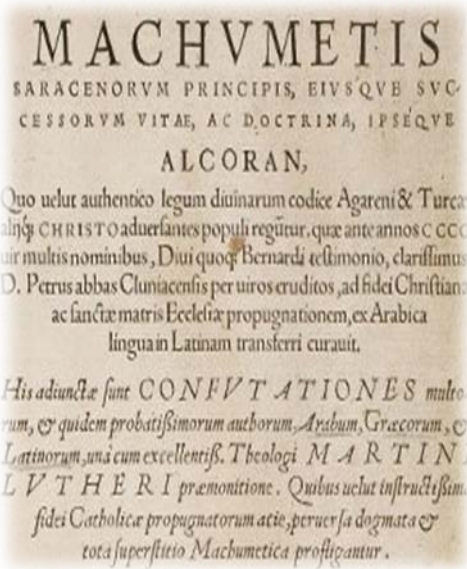 MACHVMETIS
SARACENORVM PRINCIPIS, EIVSQVE SVC-
CESSORVM VITAE, AC DOCTRINA, IPSEQVE
ALCORAN,
Quo uelut authentico legum diuinarum codice Agareni & Turcæ
alijq; CHRISTO aduersantes populi regũtur. quæ ante annos CCCC
uir multis nominibus, Diui quoq; Bernardi testimonio, clarissimus
D. Petrus abbas Cluniacensis per uiros eruditos, ad fidei Christian
ac sanctæ matris Ecclesiæ propugnationem, ex Arabica
lingua in Latinam transferri curauit.
His adiunctæ sunt CONFVTATIONES multo-
rum, & quidem probatißimorum authorum, Arabum, Græcorum, &
Latinorum, unà cum excellentiß. Theologi MARTINI
LVTHERI præmonitione. Quibus uelut instructißim
fidei Catholicæ propugnatorum acie, peruersa dogmata &
tota superstitio Machumetica profligantur.